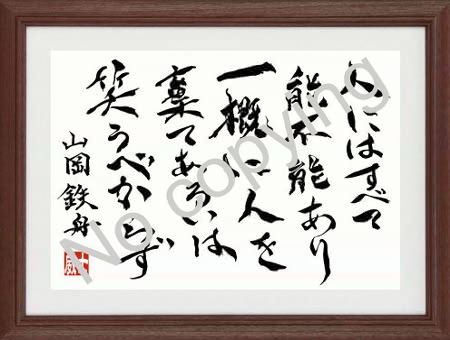 人にはすべて
能不能あり
一概に人を
棄てあるいは
笑うべからず
山岡鉄舟
No copying